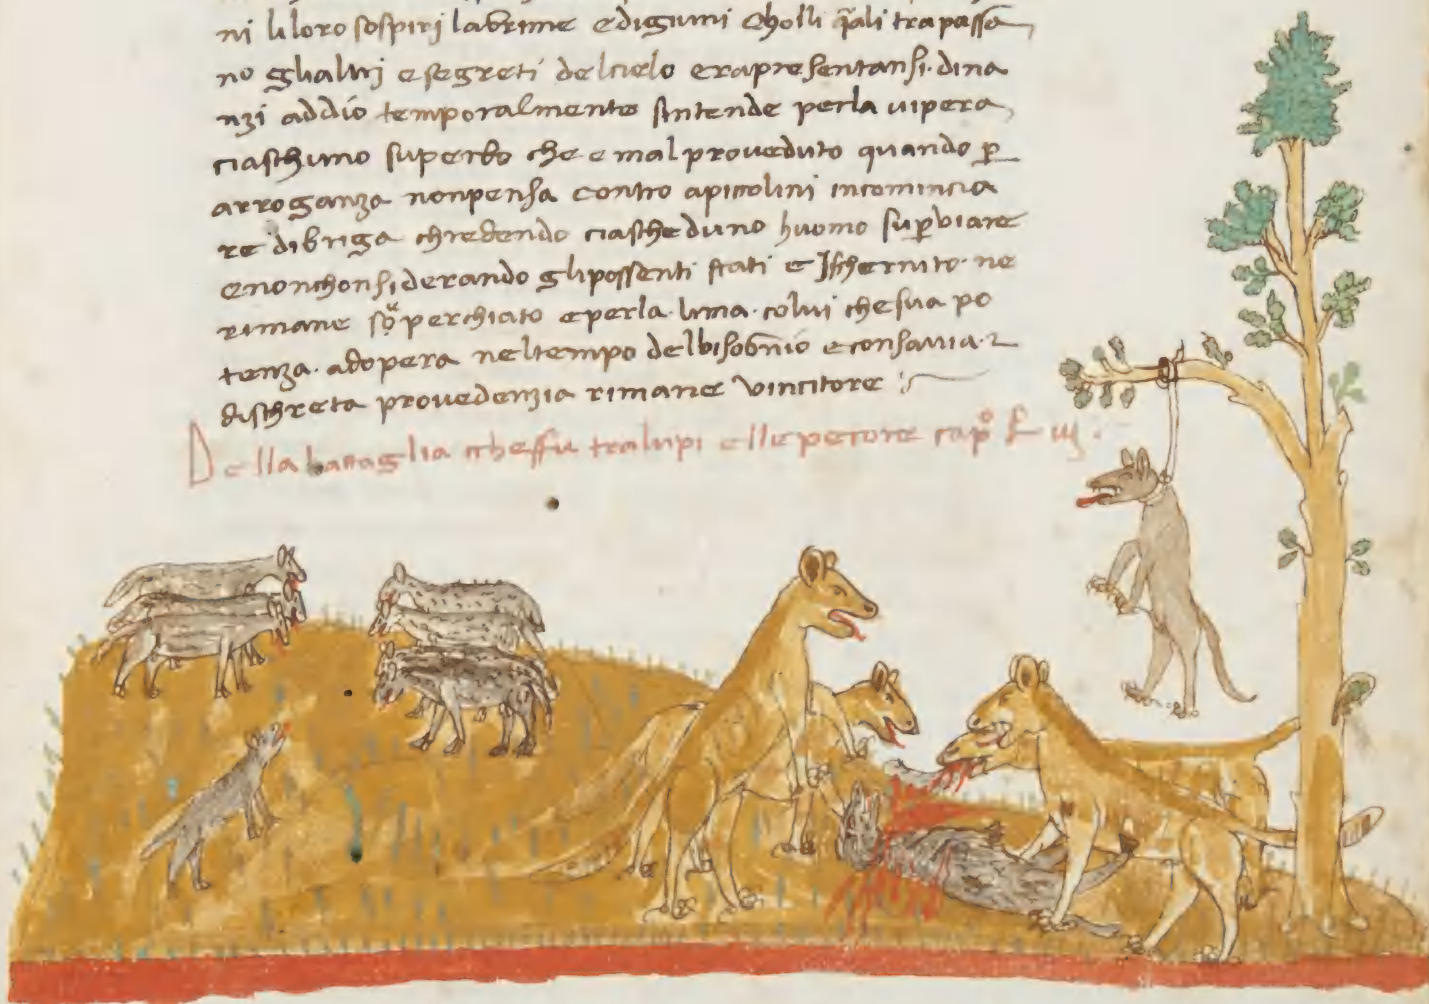 ni li loro sospirj labrime edigiuni Qholli q̃ali trapassa
no glialtrj esegreti delcielo erapresentansi. dina
nzi addio temporalmente sintende perla uipera
ciaschuno superbo che e mal proueduto quando p̱
arroganza nonpensa contro apiccolini incomincia
re dibriga chredendo ciascheduno huomo suꝑbiare
enonchonsiderando glipossenti stati e Ischernito. ne
rimane soperchiato eperla. lima. colui chesua po
tenza. adopera neltempo delbisognio econsauia. z
dischreta prouedenzia rimane vincitore :~
Della battaglia cheffu tralupi ellepecore capº